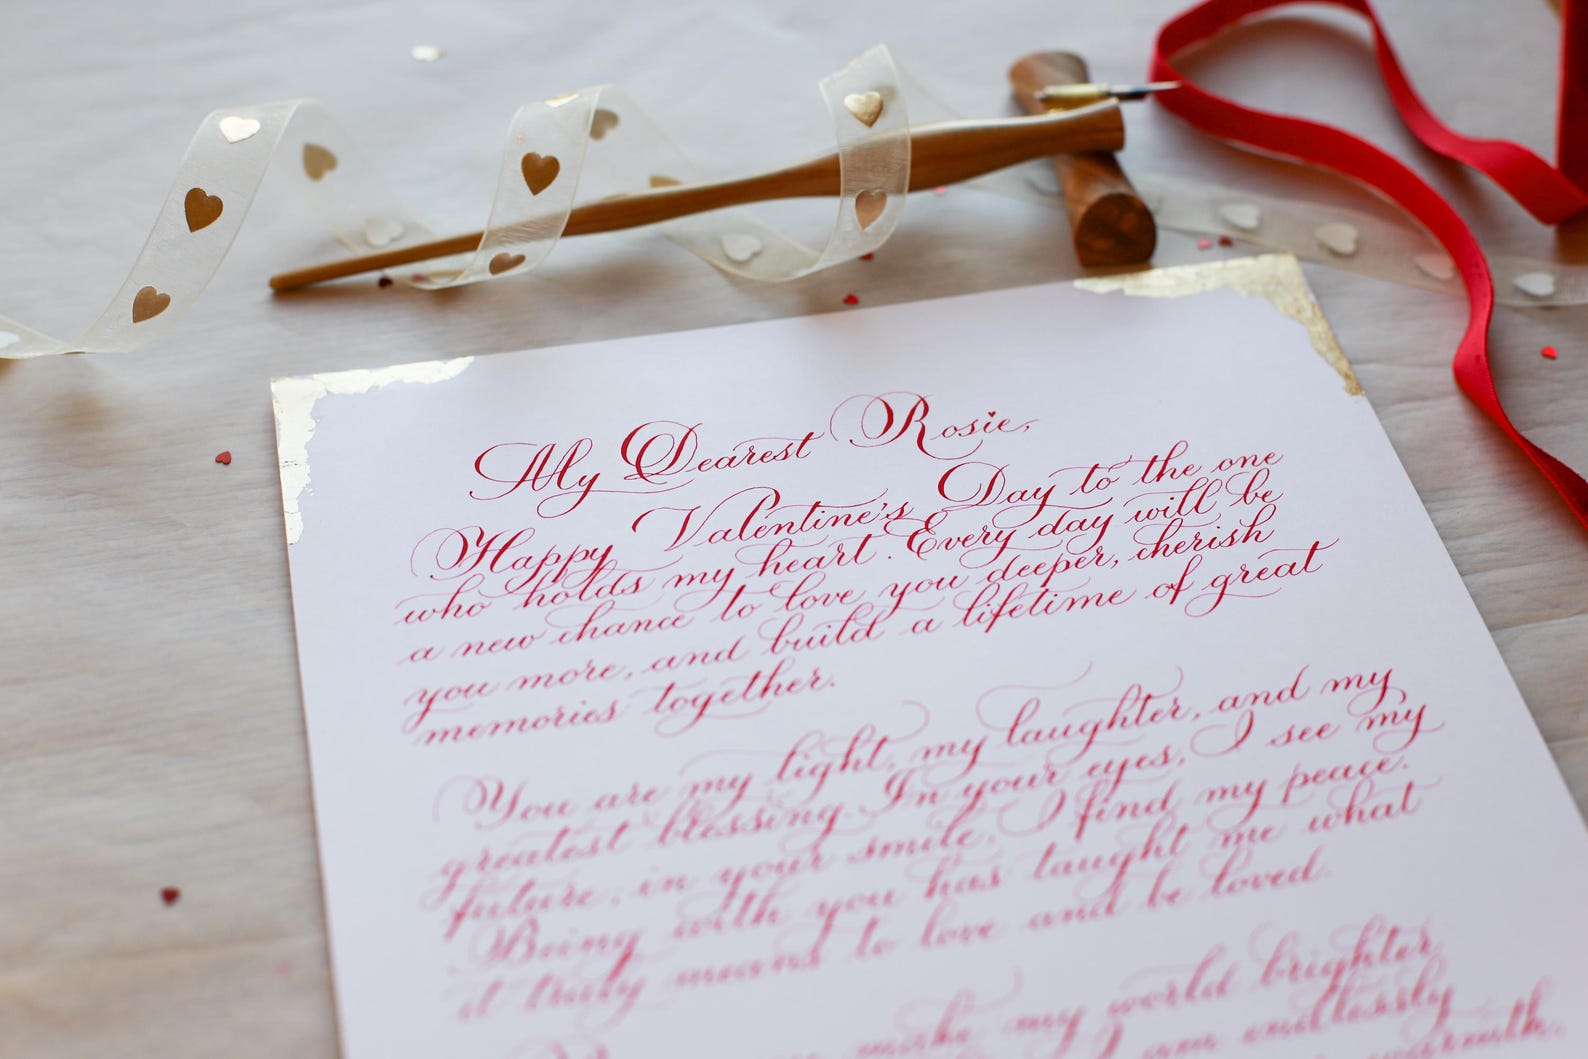 My Dearest Rosie,
Happy Valentine's Day to the one
who holds my heart. Every day will be
a new chance to love you deeper, cherish
you more, and build a lifetime of great
memories together.
You are my light, my laughter, and my
greatest blessing. In your eyes, I see my
future, in your smile, I find my peace.
Being with you has taught me what
it truly means to love and be loved.
make my world brighter
I am endlessly
warmth.